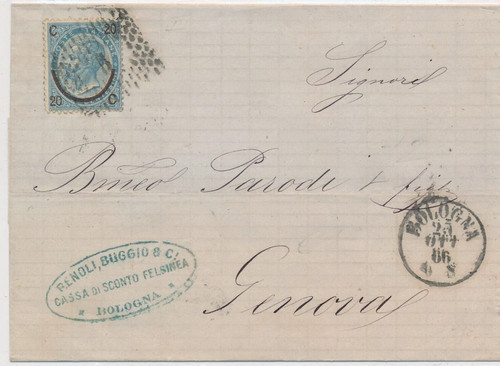 C 20
20 C
Signori
Parodi & figli
BOLOGNA
25
OTT
66
RENOLI, BUGGIO & C.
CASSA DI SCONTO FELSINEA
* BOLOGNA *
Genova